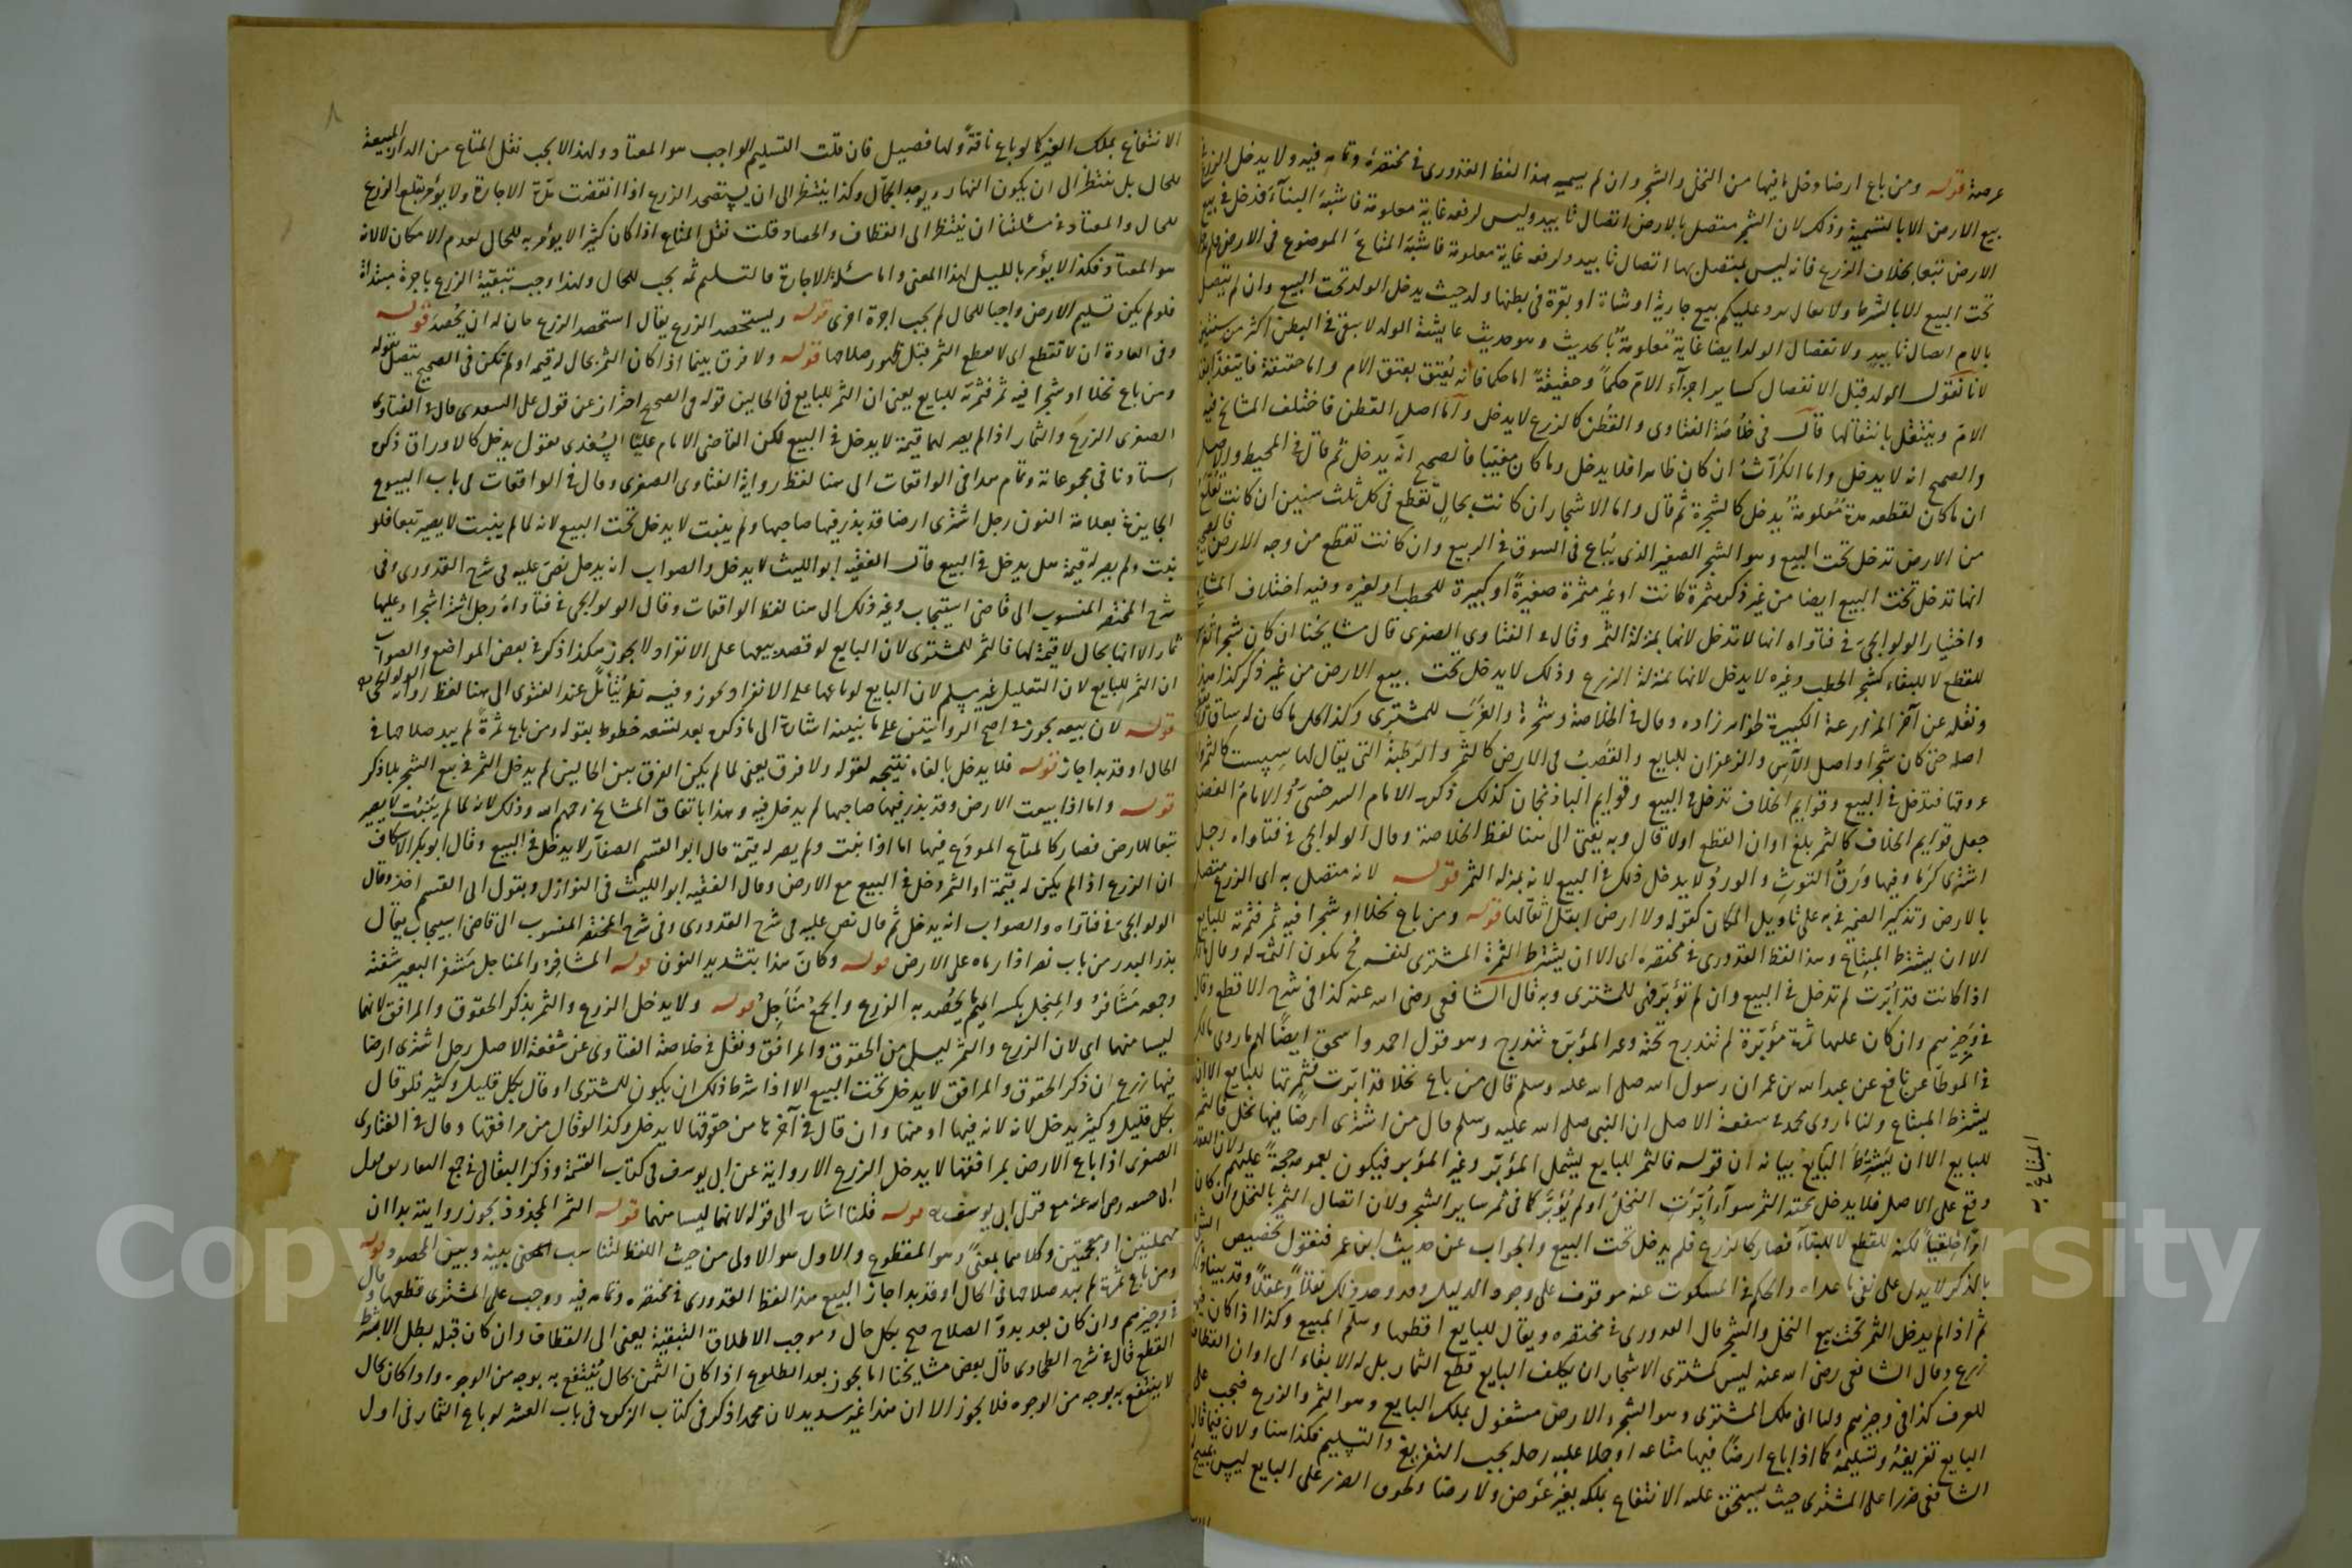 عرصة قوله ومن باع ارضا دخل ما فيها من النخل والشجر وان لم يسمه هذا لفظ القدوري في مختصره وتمامه فيه ولا يدخل الزرع في
بيع الارض الا بالتسمية وذلك لان الشجر متصل بالارض اتصال تابيد وليس لرفعه غاية معلومة فاشبه البناء فدخل في بيع
الارض تبعا بخلاف الزرع فانه ليس بمتصل بها اتصال تابيد ولرفعه غاية معلومة فاشبه المتاع الموضوع في الارض فلم يدخل
تحت البيع الا بالشرط ولا يقال يرد عليكم بيع جارية او شاة او بقرة في بطنها ولد حيث يدخل الولد تحت البيع وان لم يتصل
بالام اتصال تابيد ولانفصال الولد ايضا غاية معلومة بالحديث وهو حديث عايشة الولد لا يبقى في البطن اكثر من سنتين
لانا نقول الولد قبل الانفصال كساير اجزاء الام حكما وحقيقة اما حكما فانه يعتق بعتق الام واما حقيقة فيتغذى بغذاء
الام وينتقل بانتقالها قال في خلاصة الفتاوى والقطن كالزرع لا يدخل واما اصل القطن فاختلف المشايخ فيه
والصحيح انه لا يدخل واما الكراث ان كان ظاهرا فلا يدخل وما كان مغيبا فالصحيح انه يدخل ثم قال في المحيط والاصل
ان ما كان لقطعه مدة معلومة يدخل كالشجرة ثم قال واما الاشجار ان كانت بحال تقطع في كل ثلث سنين ان كانت تقلع
من الارض تدخل تحت البيع وهو الشجر الصغير الذي يباع في السوق في الربيع وان كانت تقطع من وجه الارض فالصحيح
انها تدخل تحت البيع ايضا من غير ذكر مثمرة كانت او غير مثمرة صغيرة او كبيرة للحطب او لغيره وفيه اختلاف المشايخ
واختيار الولوالجي في فتاواه انها لا تدخل لانها بمنزلة الثمر وقال في الفتاوى الصغرى قال مشايخنا ان كان شجرا يغرس
للقطع لا للبقاء كشجر الحطب وغيره لا يدخل لانها بمنزلة الزرع وذلك لا يدخل تحت بيع الارض من غير ذكر كذا هذا
ونقله عن آخر المزارعة الكبيرة لخواهر زاده وقال في الخلاصة وشجرة والغرب للمشتري وكذا كل ما كان له ساق
اصله حتى كان شجرا واصل الآس والزعفران للبايع والقصب في الارض كالثمر والرطبة التي يقال لها سپست كالثمر
عروقها فتدخل في البيع وقوايم الخلاف تدخل في البيع وقوايم الباذنجان كذلك ذكره الامام السرخسي والامام الفضلي
جعل قوايم الخلاف كالثمر بلغ اوان القطع اولا قال وبه يفتى الى هنا لفظ الخلاصة وقال الولوالجي في فتاواه رجل
اشترى كرما وفيها ورق التوث والورد لا يدخل ذلك في البيع لانه بمنزلة الثمر قوله لانه متصل به اى الزرع متصل
بالارض وتذكير الضمير في به على تاويل المكان كقوله ولا ارض ابقل ابقالها قوله ومن باع نخلا او شجرا فيه ثمر فثمرته للبايع
الا ان يشترط المبتاع وهذا لفظ القدوري في مختصره اى الا ان يشترط الثمرة المشتري لنفسه فح يكون الثمرة له وقال مالك
اذا كانت قد ابرت لم تدخل في البيع وان لم تؤبر فهي للمشتري وبه قال الشافعي رضي الله عنه كذا في شرح الاقطع وقال
في وجيزهم وان كان عليها ثمرة مؤبرة لم تندرج تحته وغير المؤبرة تندرج وهو قول احمد واسحق ايضا لهم ما روى مالك
في الموطأ عن نافع عن عبد الله بن عمر ان رسول الله صلى الله عليه وسلم قال من باع نخلا قد ابرت فثمرتها للبايع الا ان
يشترط المبتاع ولنا ما روى محمد في شفعة الاصل ان النبي صلى الله عليه وسلم قال من اشترى ارضا فيها نخل فالثمر
للبايع الا ان يشترط المبتاع بيانه ان قوله فالثمر للبايع يشمل المؤبر وغير المؤبر فيكون بعمومه حجة عليهم ولان العقد
وقع على الاصل فلا يدخل تحته الثمر سواء ابرت النخل او لم يؤبر كما في ثمر ساير الشجر ولان اتصال الثمر بالنخل وان كان
امرا خلقيا لكنه للقطع لا للبقاء فصار كالزرع فلم يدخل تحت البيع والجواب عن حديث ابن عمر فنقول تخصيص الشئ
بالذكر لا يدل على نفي ما عداه والحكم في المسكوت عنه موقوف على وجود الدليل وقد وجد ذلك نقلا وعقلا وقد بيناه
ثم اذا لم يدخل الثمر تحت بيع النخل والشجر قال القدوري في مختصره ويقال للبايع اقطعها وسلم المبيع وكذا اذا كان فيها
زرع وقال الشافعي رضي الله عنه ليس لمشتري الاشجار ان يكلف البايع قطع الثمار بل له الابقاء الى اوان القطاف
للعرف كذا في وجيزهم ولنا ان ملك المشتري وهو الشجر والارض مشغول بملك البايع وهو الثمر والزرع فيجب على
البايع تفريغه وتسليمه كما اذا باع ارضا فيها متاعه او جملا عليه رحله يجب التفريغ والتسليم فكذا هنا ولان فيما قال
الشافعي ضررا على المشتري حيث يستحق عليه الانتفاع بملكه بغير عوض ولا رضا ولحوق الضرر على البايع ليس بصنع
الانتفاع بملك الغير كما لو باع ناقة ولها فصيل فان قلت التسليم الواجب هو المعتاد ولهذا لا يجب نقل المتاع من الدار المبيعة
للحال بل ينتظر الى ان يكون النهار ويوجد الحمال وكذا ينتظر الى ان يستحصد الزرع اذا انقضت مدة الاجارة ولا يؤمر بقلع الزرع
للحال والمعتاد في مسئلتنا ان ينتظر الى القطاف والحصاد قلت نقل المتاع اذا كان كثيرا لا يؤمر به للحال لعدم الامكان لا لانه
هو المعتاد فكذا لا يؤمر بالليل لهذا المعنى واما مسئلة الاجارة فالتسليم ثمه يجب للحال ولهذا وجب تبقية الزرع باجرة مبتدأة
فلو لم يكن تسليم الارض واجبا للحال لم يجب اجرة اخرى قوله ويستحصد الزرع يقال استحصد الزرع حان له ان يحصد قوله
وفي العادة ان لا تقطع اى لا يقطع الثمر قبل ظهور صلاحها قوله ولا فرق بينما اذا كان الثمر بحال له قيمة او لم تكن في الصحيح يتصل بقوله
ومن باع نخلا او شجرا فيه ثمر فثمرته للبايع يعني ان الثمر للبايع في الحالين قوله في الصحيح احتراز عن قول على السعدي قال في الفتاوى
الصغرى الزرع والثمار اذا لم يصر لهما قيمة لا يدخل في البيع لكن القاضي الامام عليا السغدي يقول يدخل كالاوراق ذكره
استاذنا في مجموعاته وتمام هذا في الواقعات الى هنا لفظ رواية الفتاوى الصغرى وقال في الواقعات في باب البيوع
الجايزة بعلامة النون رجل اشترى ارضا قد بذر فيها صاحبها ولم ينبت لا يدخل تحت البيع لانه لما لم ينبت لا يصير تبعا فلو
نبت ولم يصر له قيمة هل يدخل في البيع قال الفقيه ابو الليث لا يدخل والصواب انه يدخل نص عليه في شرح القدوري وفي
شرح المختصر المنسوب الى قاضي اسبيجاب وغير ذلك الى هنا لفظ الواقعات وقال الولوالجي في فتاواه رجل اشترى شجرا وعليها
ثمار الا انها بحال لا قيمة لها فالثمر للمشتري لان البايع لو قصد بيعها على الانفراد لا يجوز هكذا ذكر في بعض المواضع والصواب
ان الثمر للبايع لان التعليل غير مسلم لان البايع لو باعها على الانفراد يجوز وفيه نظر يتأمل عند الفتوى الى هنا لفظ رواية الولوالجي
قوله لان بيعه يجوز في اصح الروايتين على ما نبينه اشارة الى ما ذكره بعد تسعة خطوط بقوله ومن باع ثمرة لم يبد صلاحها في
الحال او قد بدا جاز قوله فلا يدخل بالفاء نتيجة لقوله ولا فرق يعني لما لم يكن الفرق بين الحالين لم يدخل الثمر في بيع الشجر بلا ذكر
قوله واما اذا بيعت الارض وقد بذر فيها صاحبها لم يدخل فيه وهذا باتفاق المشايخ رحمهم الله وذلك لانه لما لم ينبت لا يصير
تبعا للارض فصار كالمتاع الموضوع فيها اما اذا نبت ولم يصر له قيمة قال ابو القسم الصفار لا يدخل في البيع وقال ابو بكر الاسكاف
ان الزرع اذا لم يكن له قيمة او الثمر دخل في البيع مع الارض وقال الفقيه ابو الليث في النوازل وبقول ابي القسم اخذ وقال
الولوالجي في فتاواه والصواب انه يدخل ثم قال نص عليه في شرح القدوري وفي شرح المختصر المنسوب الى قاضي اسبيجاب يقال
بذر البذر من باب نصر اذا رماه على الارض قوله وكأن هذا بتشديد النون قوله المشافر والمناجل مشفر البعير شفته
وجمعه مشافر والمنجل بكسر الميم ما يحصد به الزرع والجمع مناجل قوله ولا يدخل الزرع والثمر بذكر الحقوق والمرافق لانهما
ليسا منهما اى لان الزرع والثمر ليسا من الحقوق والمرافق ونقل في خلاصة الفتاوى عن شفعة الاصل رجل اشترى ارضا
فيها زرع ان ذكر الحقوق والمرافق لا يدخل تحت البيع الا اذا شرط ذلك ان يكون للمشتري او قال بكل قليل وكثير فلو قال
بكل قليل وكثير يدخل لانه لانه فيها او منها وان قال في آخره ما من حقوقها لا يدخل وكذا لو قال من مرافقها وقال في الفتاوى
الصغرى اذا باع الارض بمرافقها لا يدخل الزرع الا رواية عن ابي يوسف في كتاب القسمة وذكر البقالي في جمع التفاريق قول
ابي حنيفة رضي الله عنه مع قول ابي يوسف قوله قلنا اشارة الى قوله لانهما ليسا منهما قوله الثمر المجذوذ يجوز روايته بدالين
مهملتين او معجمتين وكلاهما بمعنى وهو المقطوع والاول هو الاولى من حيث اللفظ لتناسب بينه وبين المحصود قوله
ومن باع ثمرة لم يبد صلاحها في الحال او قد بدا جاز البيع هذا لفظ القدوري في مختصره وتمامه فيه ووجب على المشتري قطعها وقال
في وجيزهم وان كان بعد بدو الصلاح صح بكل حال وموجب الاطلاق التبقية يعني الى القطاف وان كان قبله بطل الا بشرط
القطع قال في شرح الطحاوي قال بعض مشايخنا انما يجوز بعد الطلوع اذا كان الثمن بحال ينتفع به بوجه من الوجوه واذا كان بحال
لا ينتفع به بوجه من الوجوه فلا يجوز الا ان هذا غير سديد لان محمدا ذكر في كتاب الزكوة في باب العشر لو باع الثمار في اول
Copyright © King Saud University